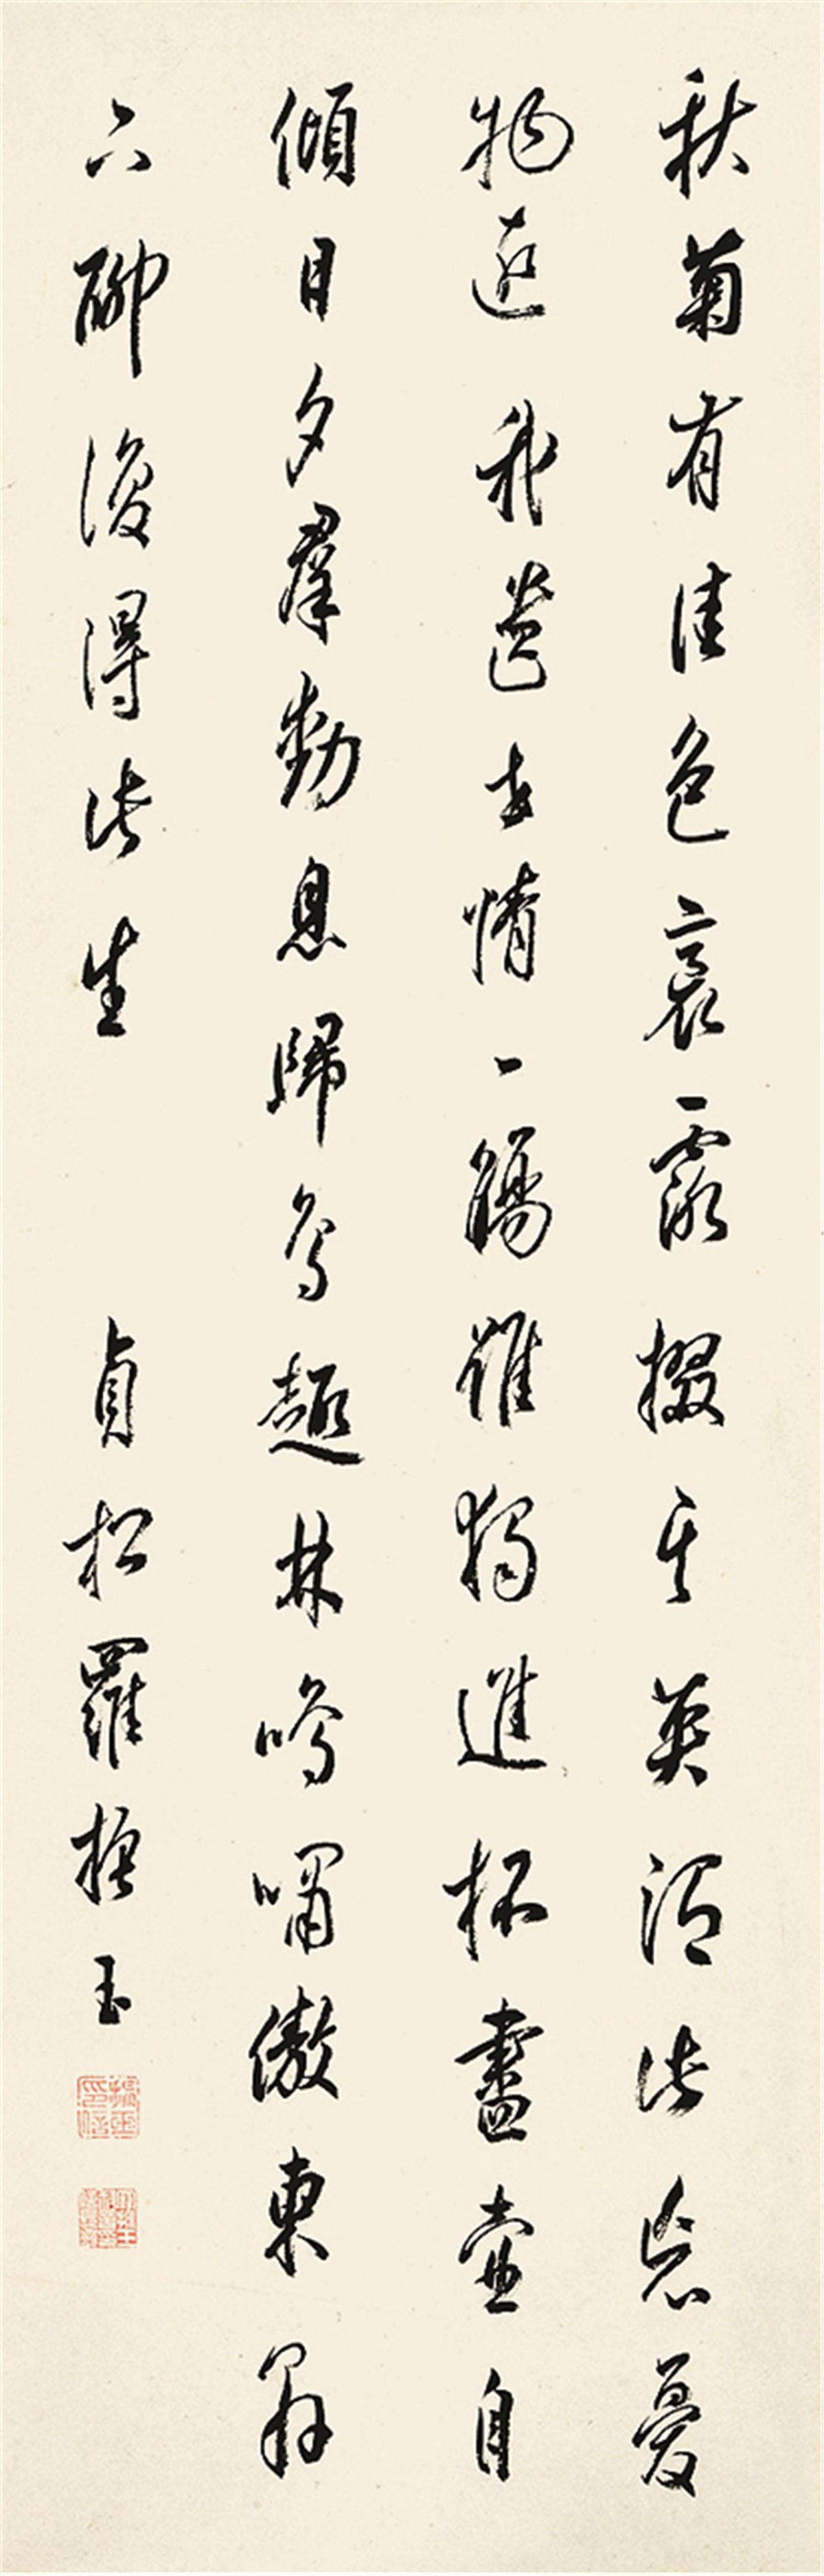 秋菊有佳色裛露掇其英此忘憂
物遠我遺世情一觴雖獨進杯盡壺自
傾日夕羣動息歸鳥趨林鳴嘯傲東軒
下聊復得此生 貞松羅振玉
振玉印信